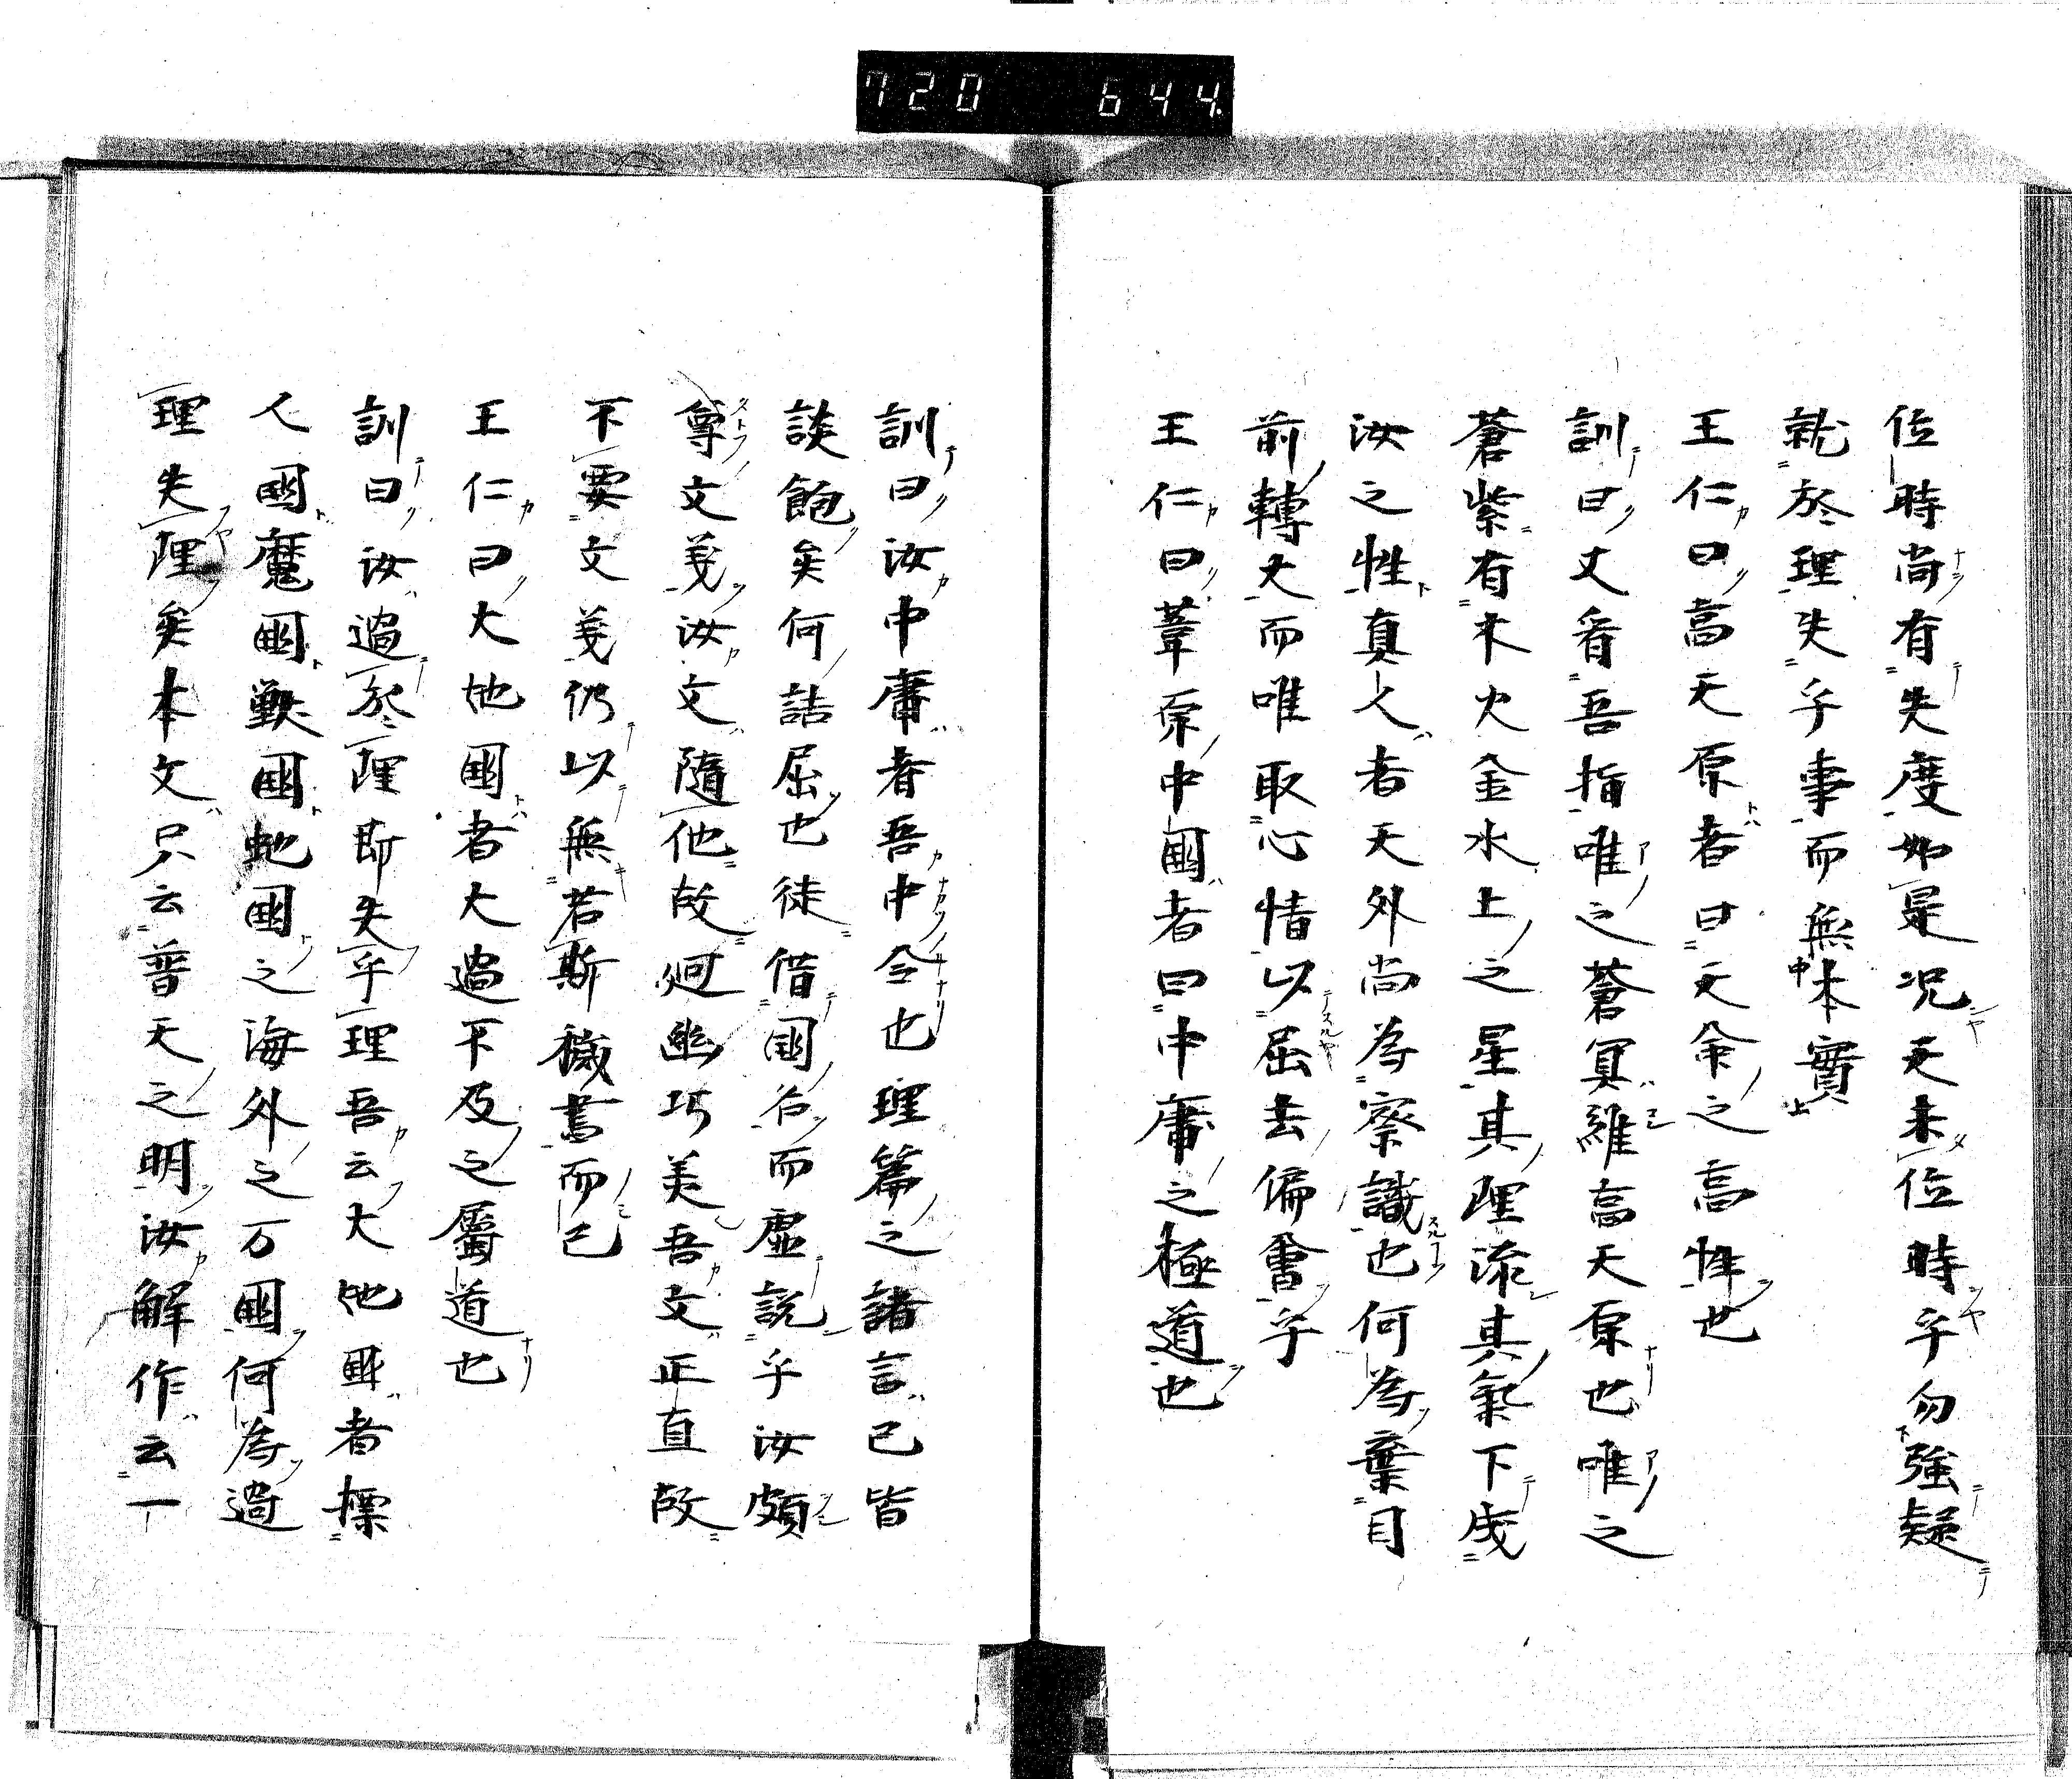 720 644
位時尚有失度如是况天未位時乎勿強疑
就於理失乎事而無本實
王仁曰高天原者曰天命之高性也
訓曰丈看吾指唯之蒼冥維高天原也唯之
蒼紫有木火金水土之星其理流其氣下成
汝之性真人者天外尚為察識也何為棄目
前轉大而唯取心情以屈去偏書乎
王仁曰葦原中國者曰中庸之極道也
訓曰汝中庸者吾中令也理篇之諸言已皆
談飽矣何詰屈也徒借國谷而虛說乎汝頗
尊文義汝文隨他故廻幽巧美吾文正直故
不要文義仍以無若斯穢書而已
王仁曰大地國者大過不及之屬道也
訓曰汝過於理即失乎理吾云大地國者摽
人國魔國獸國虵國之海外之万國何為過
理失理矣本文只云普天之明汝解作云一